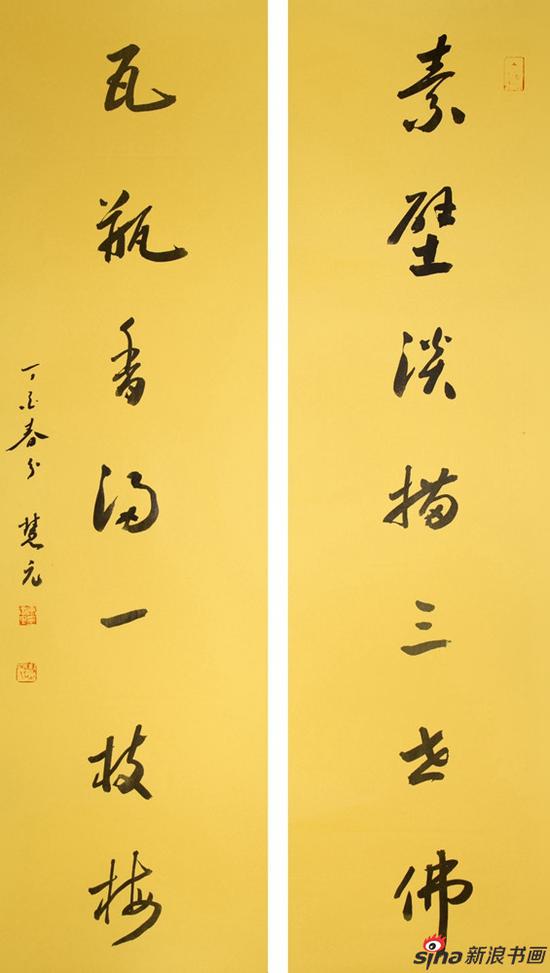 素壁淡描三世佛
瓦瓶香浸一枝梅
丁酉春分 慧元
sina新浪书画